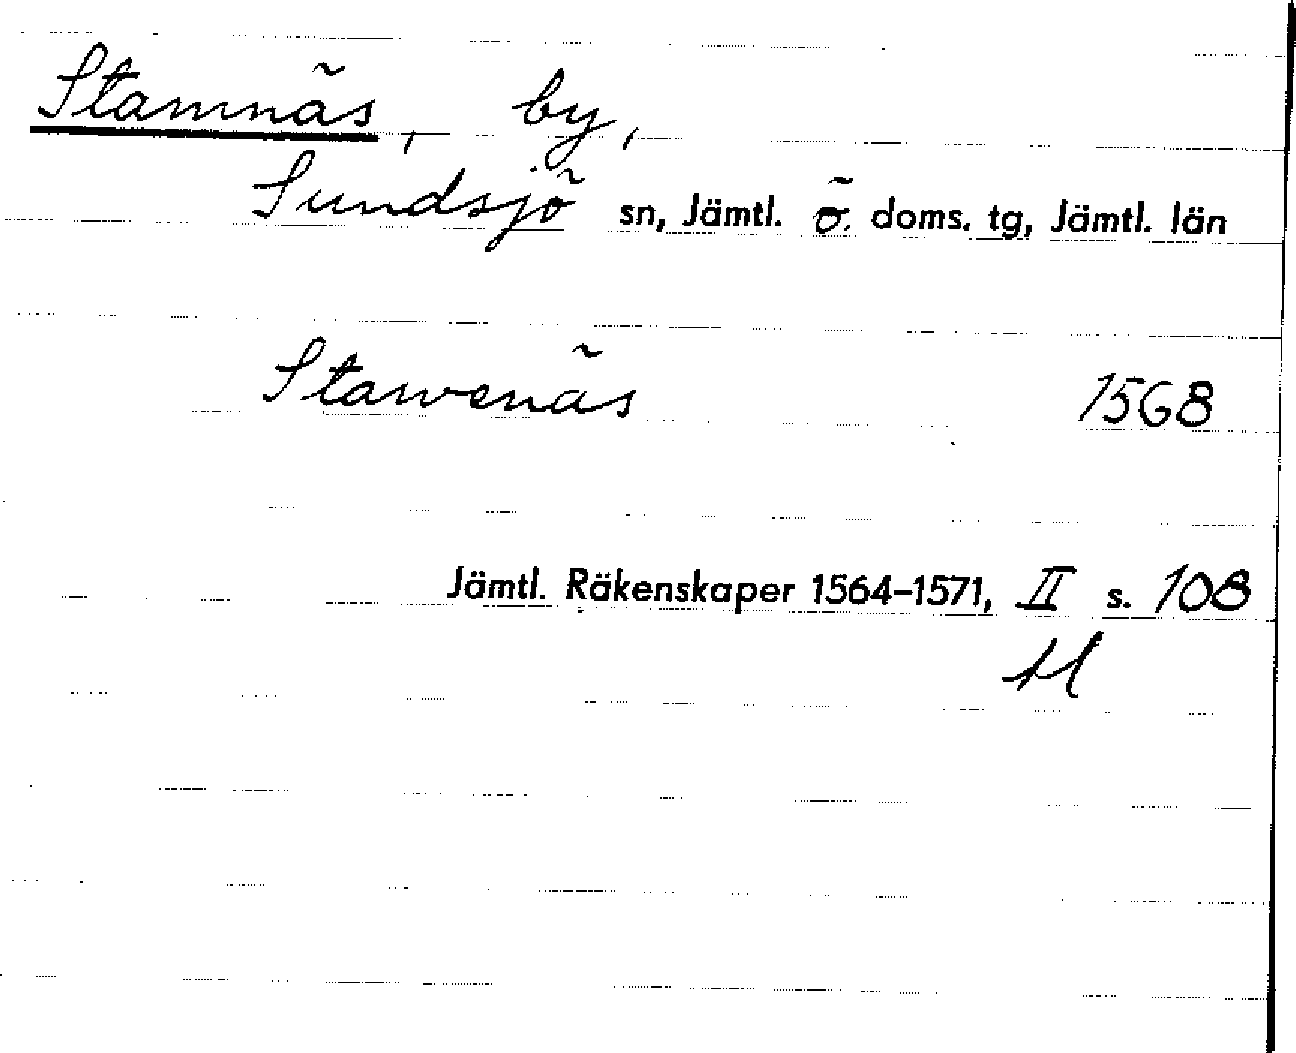 Stamnäs, by,
Sundsjö sn, Jämtl. ö. doms. tg, Jämtl. län
Starvenäs 1568
Jämtl. Räkenskaper 1564-1571, II s. 108